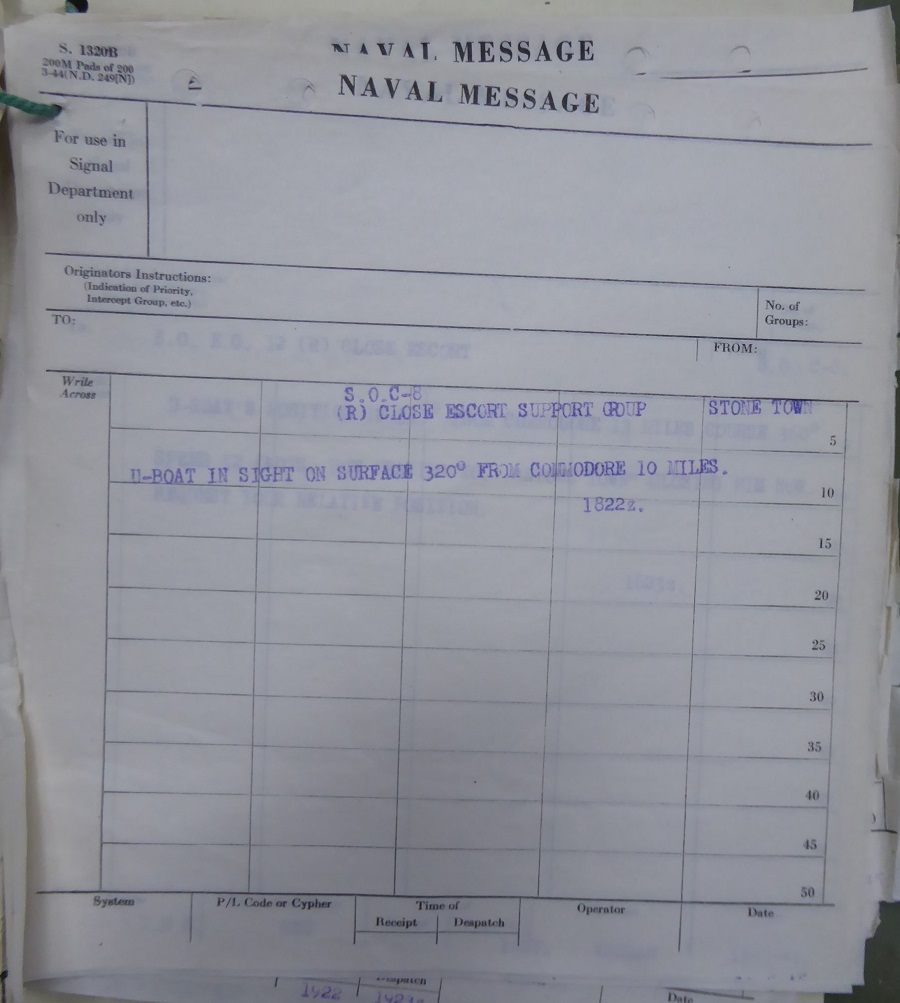 S. 1320B
200M Pads of 200
3-44(N.D. 249[N])
NAVAL MESSAGE
NAVAL MESSAGE
For use in
Signal
Department
only
Originators Instructions:
(Indication of Priority,
Intercept Group, etc.)
No. of
Groups:
TO:
FROM:
S.O. E.G. 12 (R) CLOSE ESCORT
Write
Across
S.O.C-8
(R) CLOSE ESCORT SUPPORT GROUP STONE TOWN
5
U-BOAT IN SIGHT ON SURFACE 320° FROM COMMODORE 10 MILES.
10
1822z.
15
20
25
30
35
40
45
50
System
P/L Code or Cypher
Time of
Receipt
Despatch
Operator
Date
Despatch
1922
Date